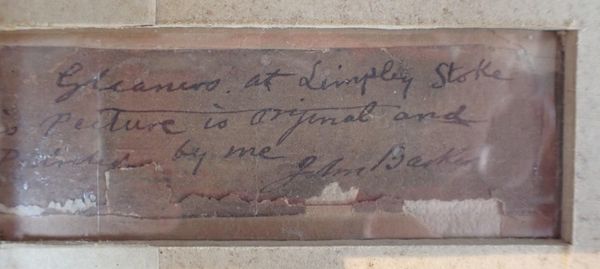 Gleaners at Limpley Stoke
s Picture is original and
Painted by me
John Barker